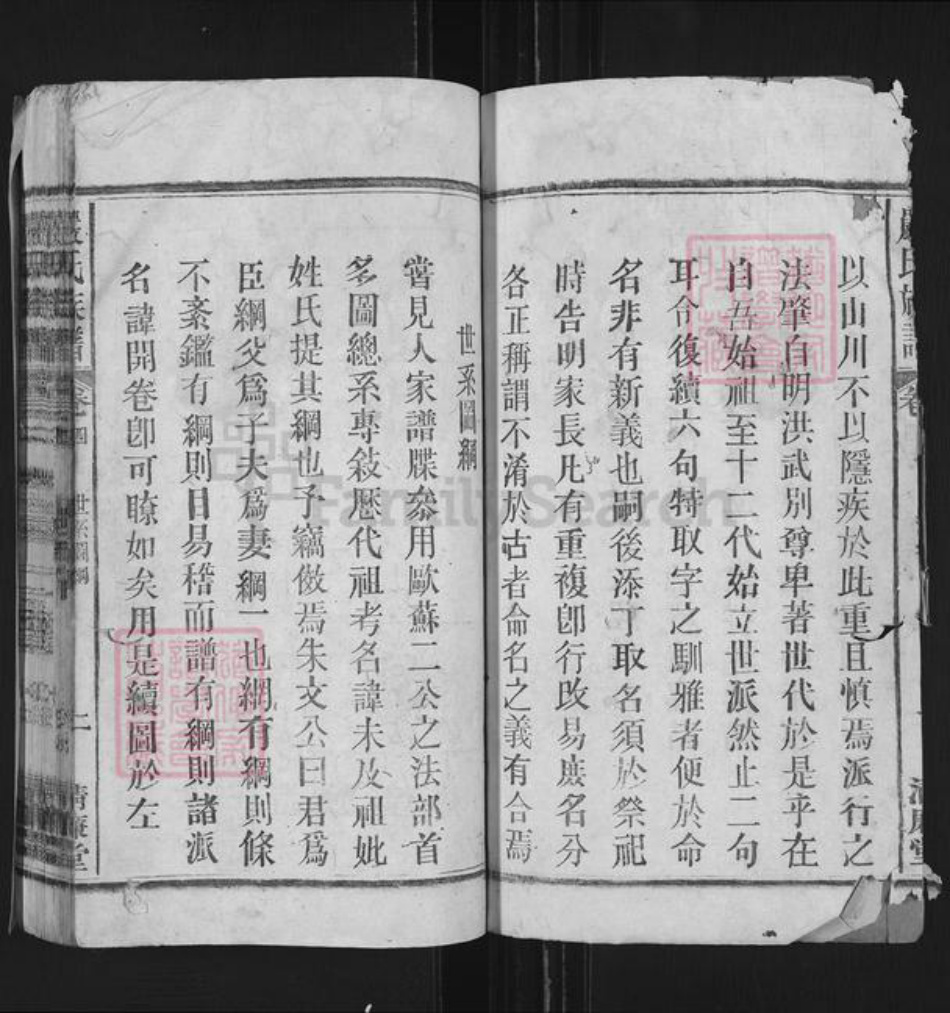 以山川不以隱疾於此重且慎焉派行之
法肇自明洪武別尊卑著世代於是乎在
自吾始祖至十二代始立世派然止二句
耳今復續六句特取字之馴雅者便於命
名非有新義也嗣後添丁取名須於祭祀
時告明家長凡有重複卽行改易庶名分
各正稱謂不淆於古者命名之義有合焉
世系圖綱
嘗見人家譜牒叅用歐蘇二公之法部首
多圖總系專敍歷代祖考名諱未及祖妣
姓氏提其綱也予竊倣焉朱文公曰君爲
臣綱父爲子夫爲妻綱一也網有綱則條
不紊鑑有綱則目易稽而譜有綱則諸派
名諱開卷卽可瞭如矣用是續圖於左
氏族譜
卷四
世系圖綱
二
清廉堂
FamilySearch